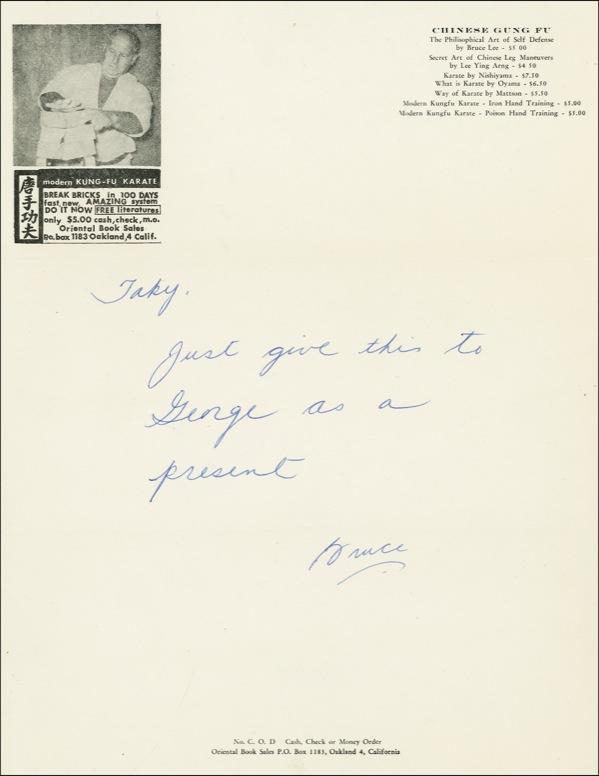 CHINESE GUNG FU
The Philisophical Art of Self Defense
by Bruce Lee - $5 00
Secret Art of Chinese Leg Maneuvers
by Lee Ying Arng - $4 50
Karate by Nishiyama - $7.50
What is Karate by Oyama - $6.50
Way of Karate by Mattson - $5.50
Modern Kungfu Karate - Iron Hand Training - $5.00
Modern Kungfu Karate - Poison Hand Training - $5.00
唐手功夫
modern KUNG-FU KARATE
BREAK BRICKS in 100 DAYS
fast, new, AMAZING system
DO IT NOW FREE literatures
only $5.00 cash, check, m.o.
Oriental Book Sales
Po. box 1183 Oakland, 4 Calif.
Taky.
Just give this to
George as a
present
Bruce
No. C. O. D Cash, Check or Money Order
Oriental Book Sales P.O. Box 1183, Oakland 4, California